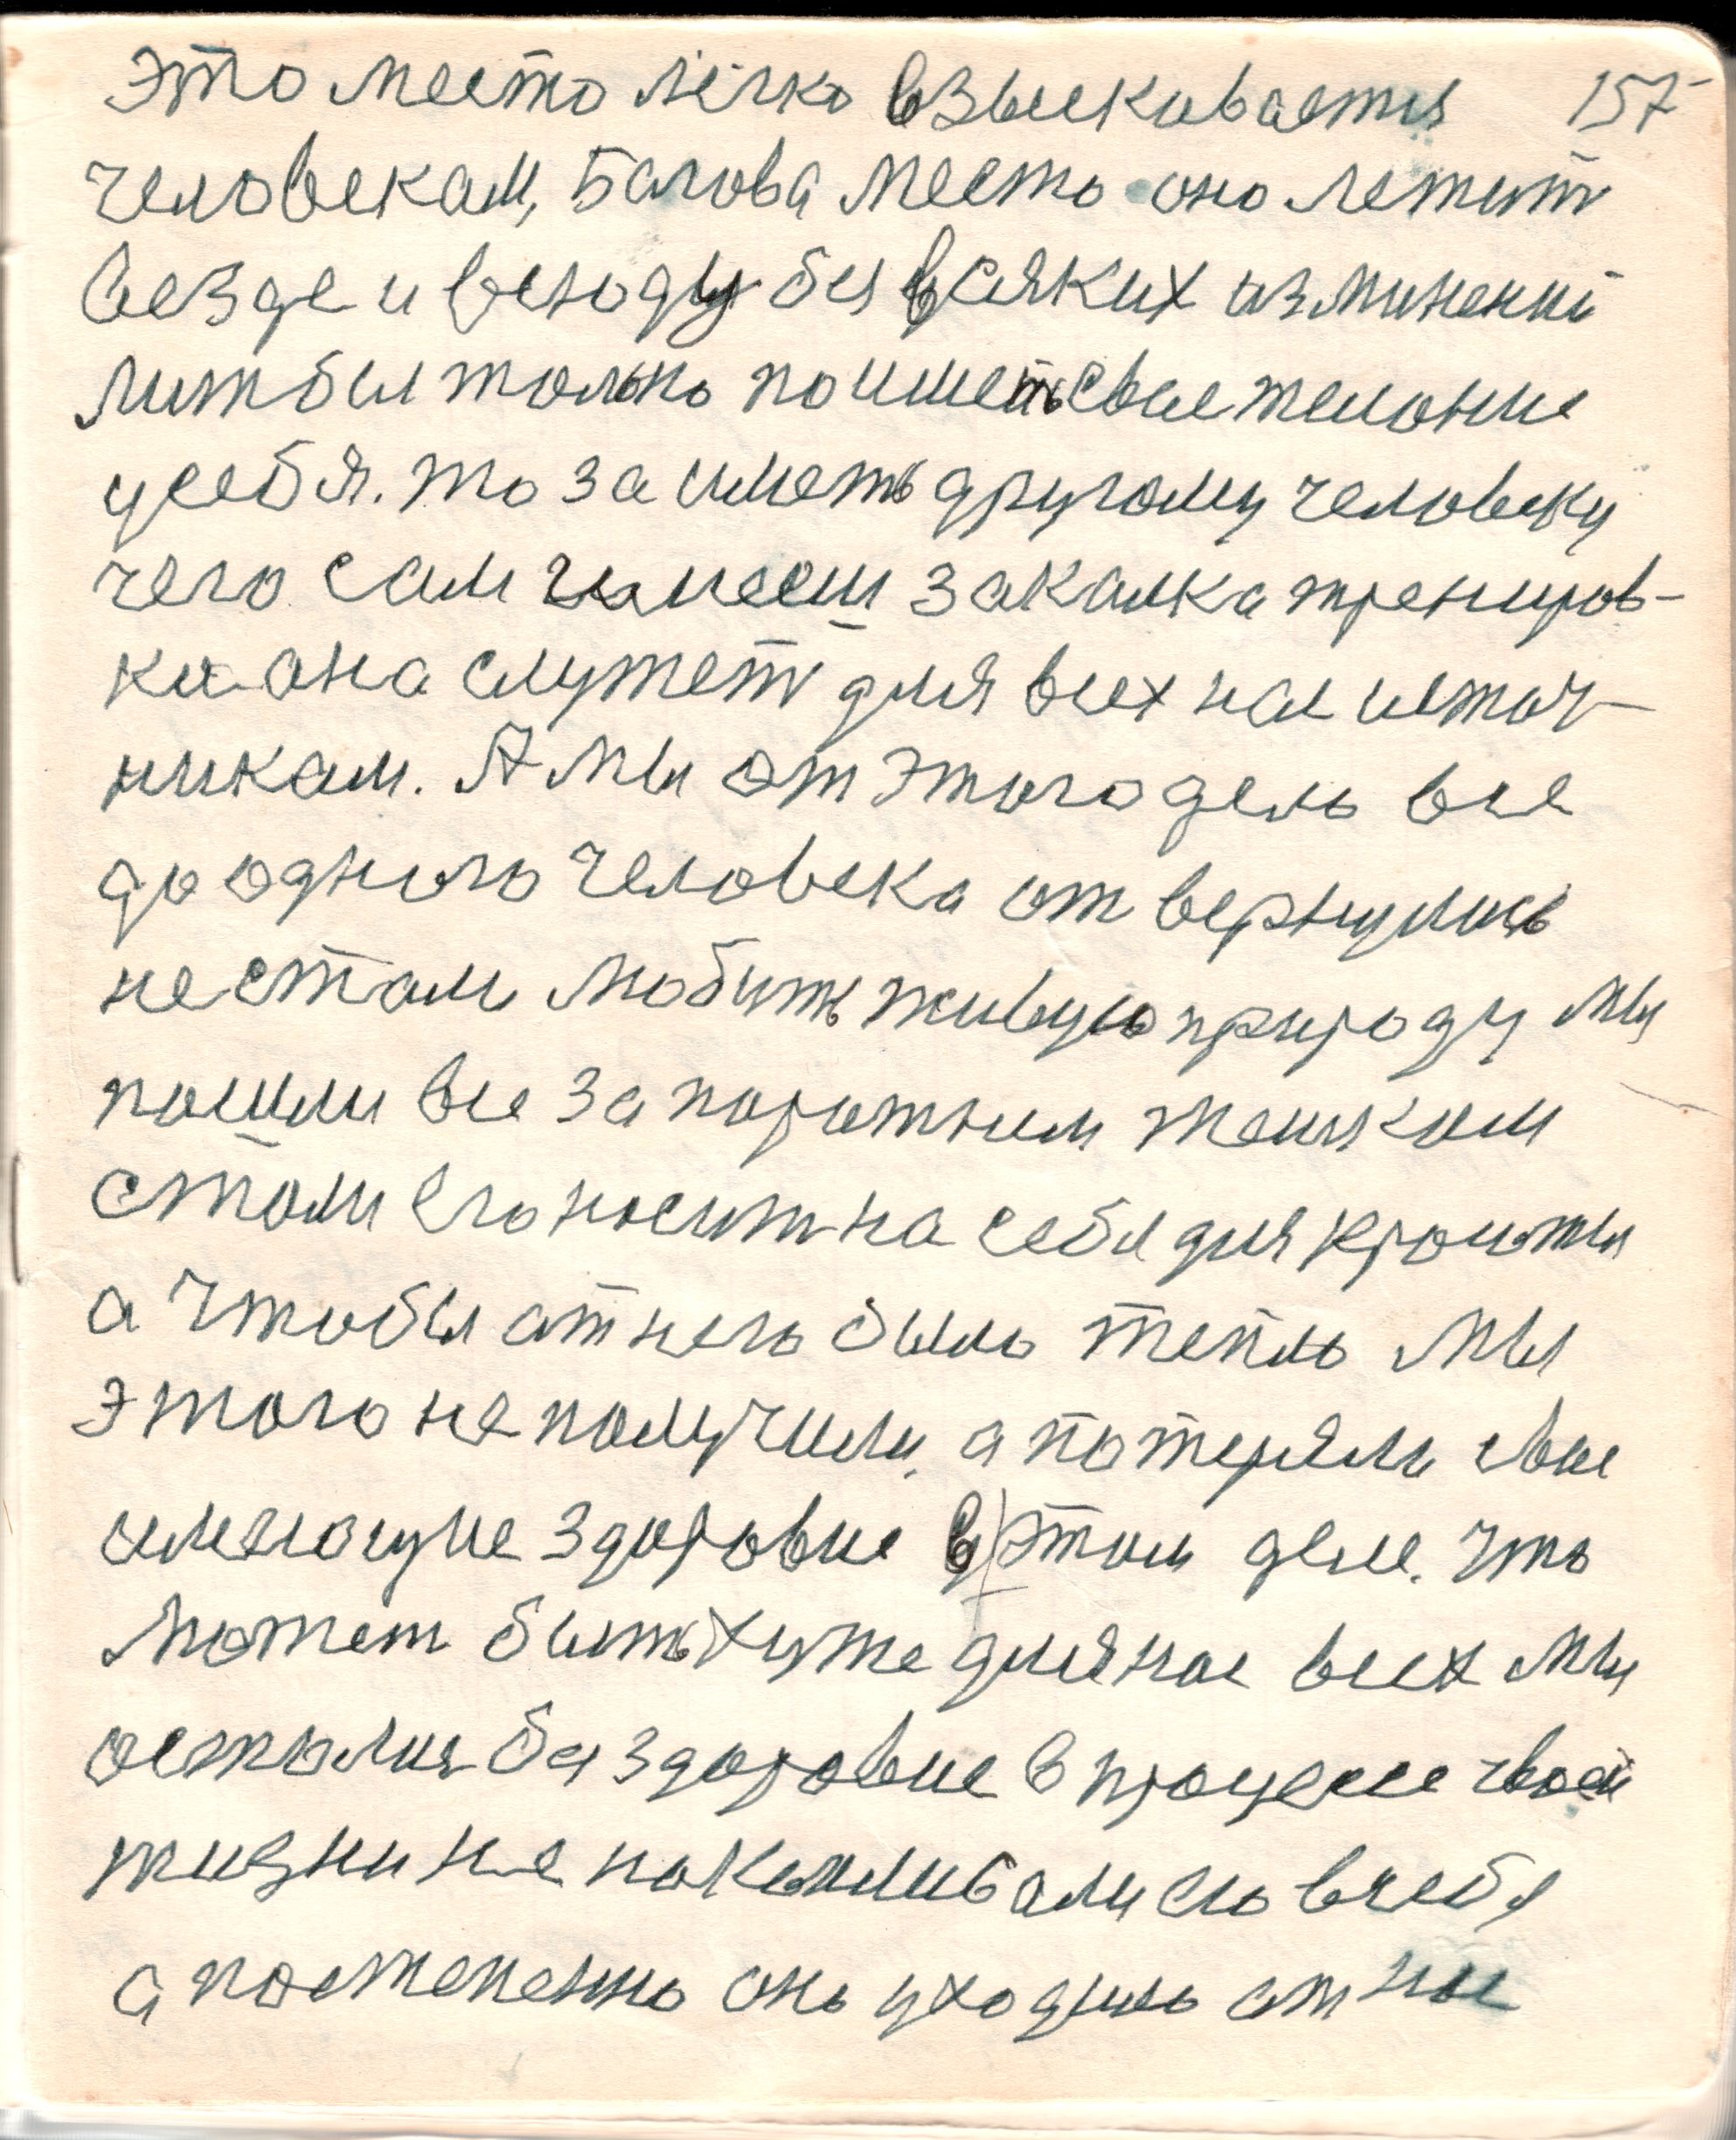 это место легко взыскивается 157
человекам, Багова место оно летит
везде и всюду без всяких изминений
литбы только поиметь свае желание
у себя. то заиметь другому человеку
чего сам имеем закалка трениров-
ка она служет для всех нас источ-
никам. А мы от этого дело все
до одного человека от вернулись
не стали любить живую природу мы
пошли все за поротним мешком
стали его носит на себе для кросоты
а чтобы от него было тепло мы
этого не получили, а потеряли свое
имеющуе здоровие в этом деле. что
может быть хуже для нас всех мы
остались без здоровие в процессе своей
жизни не накапливали ево в себе
а постепенно оно уходило от нас